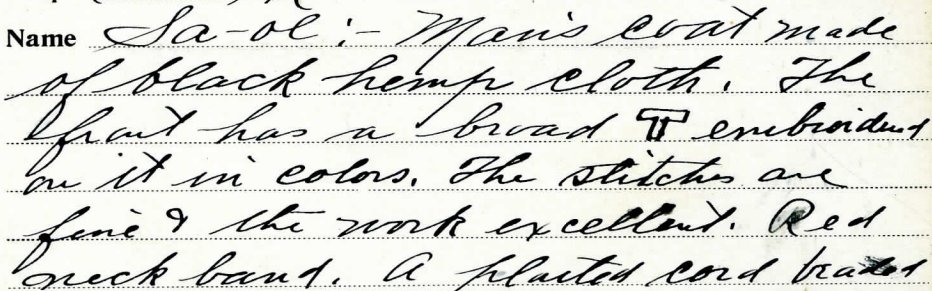 Name Sa-ol:- Man's coat made
of black hemp cloth. The
front has a broad T embroidered
on it in colors. The stitches are
fine & the work excellent. Red
neck band. A plaited cord